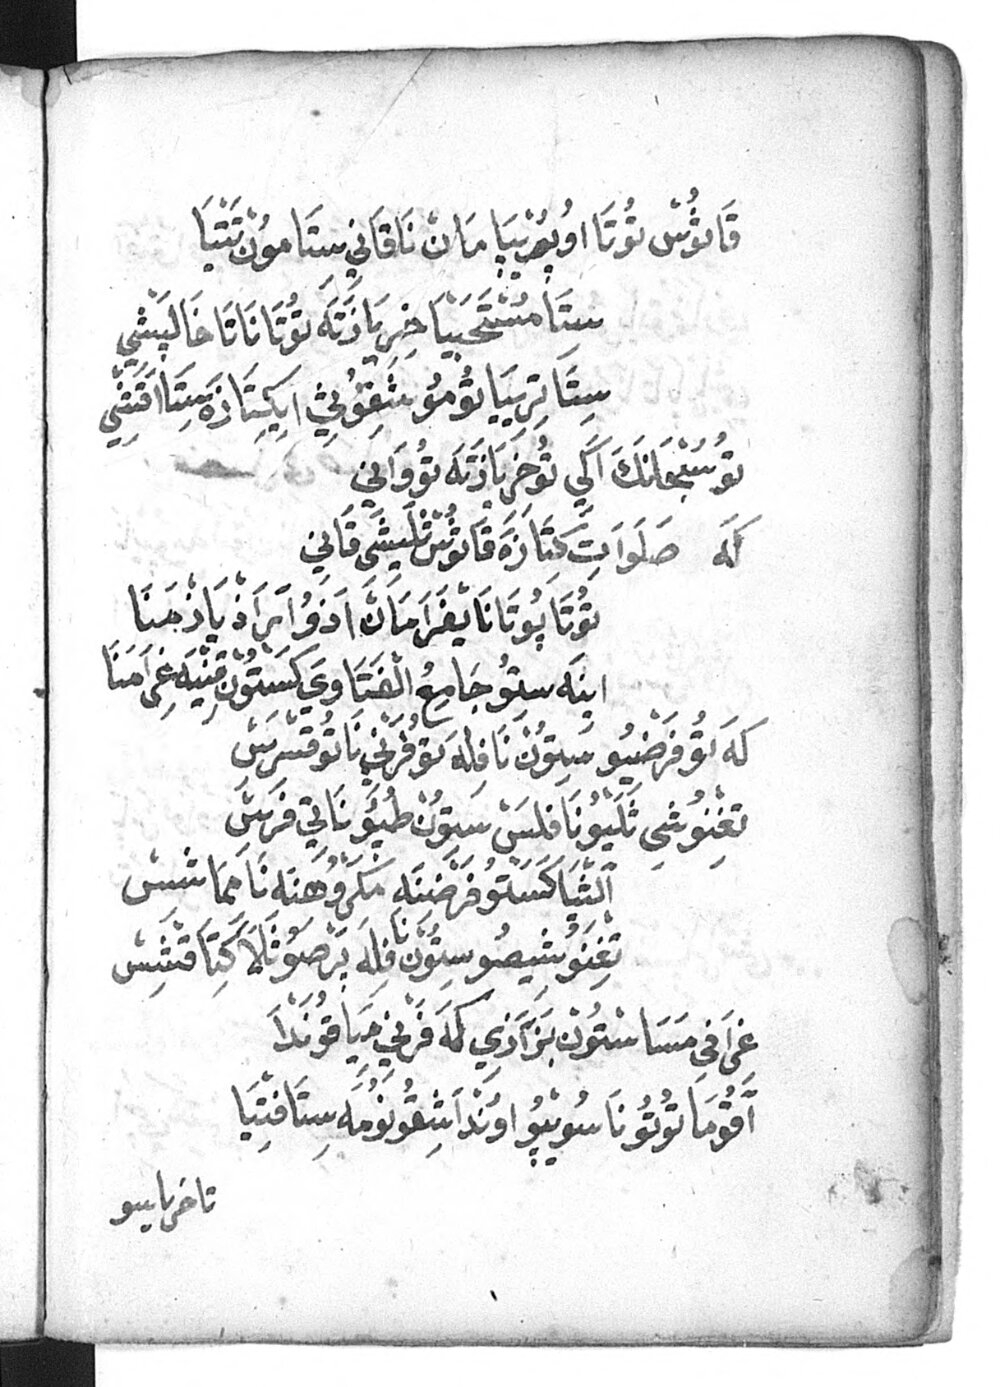 قَانُثْس تُوتَا اوُپُرِيپَا مَانْ نَا قَانِي سِتَا مُونْ تَتِيَا
سِتَا مُسْتَحَبِيَا خِرِيَاذَتَه تُوتَا نَا تَا خَالَپَشِي
سِتَا تِرِيِيَا تُومُو شِقُونِي اِيكِيتَا زَه سِتَا اَقَتِنِي
تُو سُبْحَانَكَ اَكِي تُو خِرِيَاذَتَه تُووَانِي
كَه صَلَوَاتِ كَتَازَه قَانُثُسْ ثَلِيشَي قَانِي
تُوتَا پُوتَا نَا يِغَرَامَانْ اَذَوُ اَبَرَاذْ يَاذْمَنَا
اِينَه سْتُو جَامِعُ الْفَتَاوَي كَسْتُونْ قِنْيَه غِرَامَنَا
كَه تُو فَرَضِيُو سِتُونْ نَافِلَه تُو فَرْنِي نَا تُو قْتِسَرَسْ
تَغِنُوشِي ثَلِيُونَا فِلَسْ سِتُونْ طُبِيُونَا تِي فَرَسَ
اَلثِّيَا كَسْتُو فَرْضِنَه مَكْرُوهِنَه نَا مَمَا شَسْ
تَغِنَوُشِيصُو سِتُونْ نَافِلَه پَرَصُو ثَلَا كَتَا قْتِسَسْ
غِرَافِي مَسَا سْتُونْ بَزَازِي كَه فَرْنِي مِيَا قُونْدَا
اَقُومَا تُوتُو نَا سُوسُپُو اوُنْدَا شِقُونُومَه سِتَا فَتِيَا
تاخرياسو